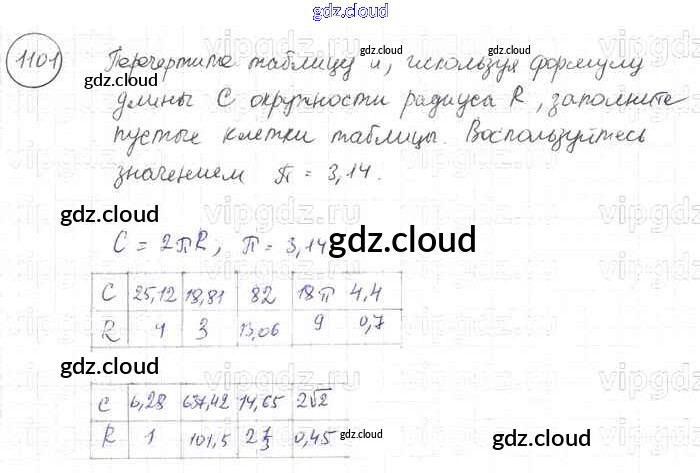 gdz.cloud
1101 Перечертите таблицу и, используя формулу
длины C окружности радиуса R, заполните
пустые клетки таблицы. Воспользуйтесь
значением π = 3,14.
gdz.cloud
C = 2πR, π = 3,14
gdz.cloud
C 25,12 18,81 82 18π 4,4
R 4 3 13,06 9 0,7
gdz.cloud
C 6,28 637,42 14,65 2√2
R 1 101,5 2 1/3 0,45
gdz.cloud